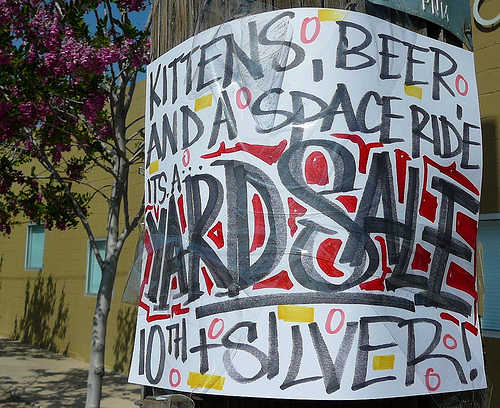 KITTENS, BEER,
AND A SPACE RIDE
ITS A...
YARD SALE
10TH + SILVER!